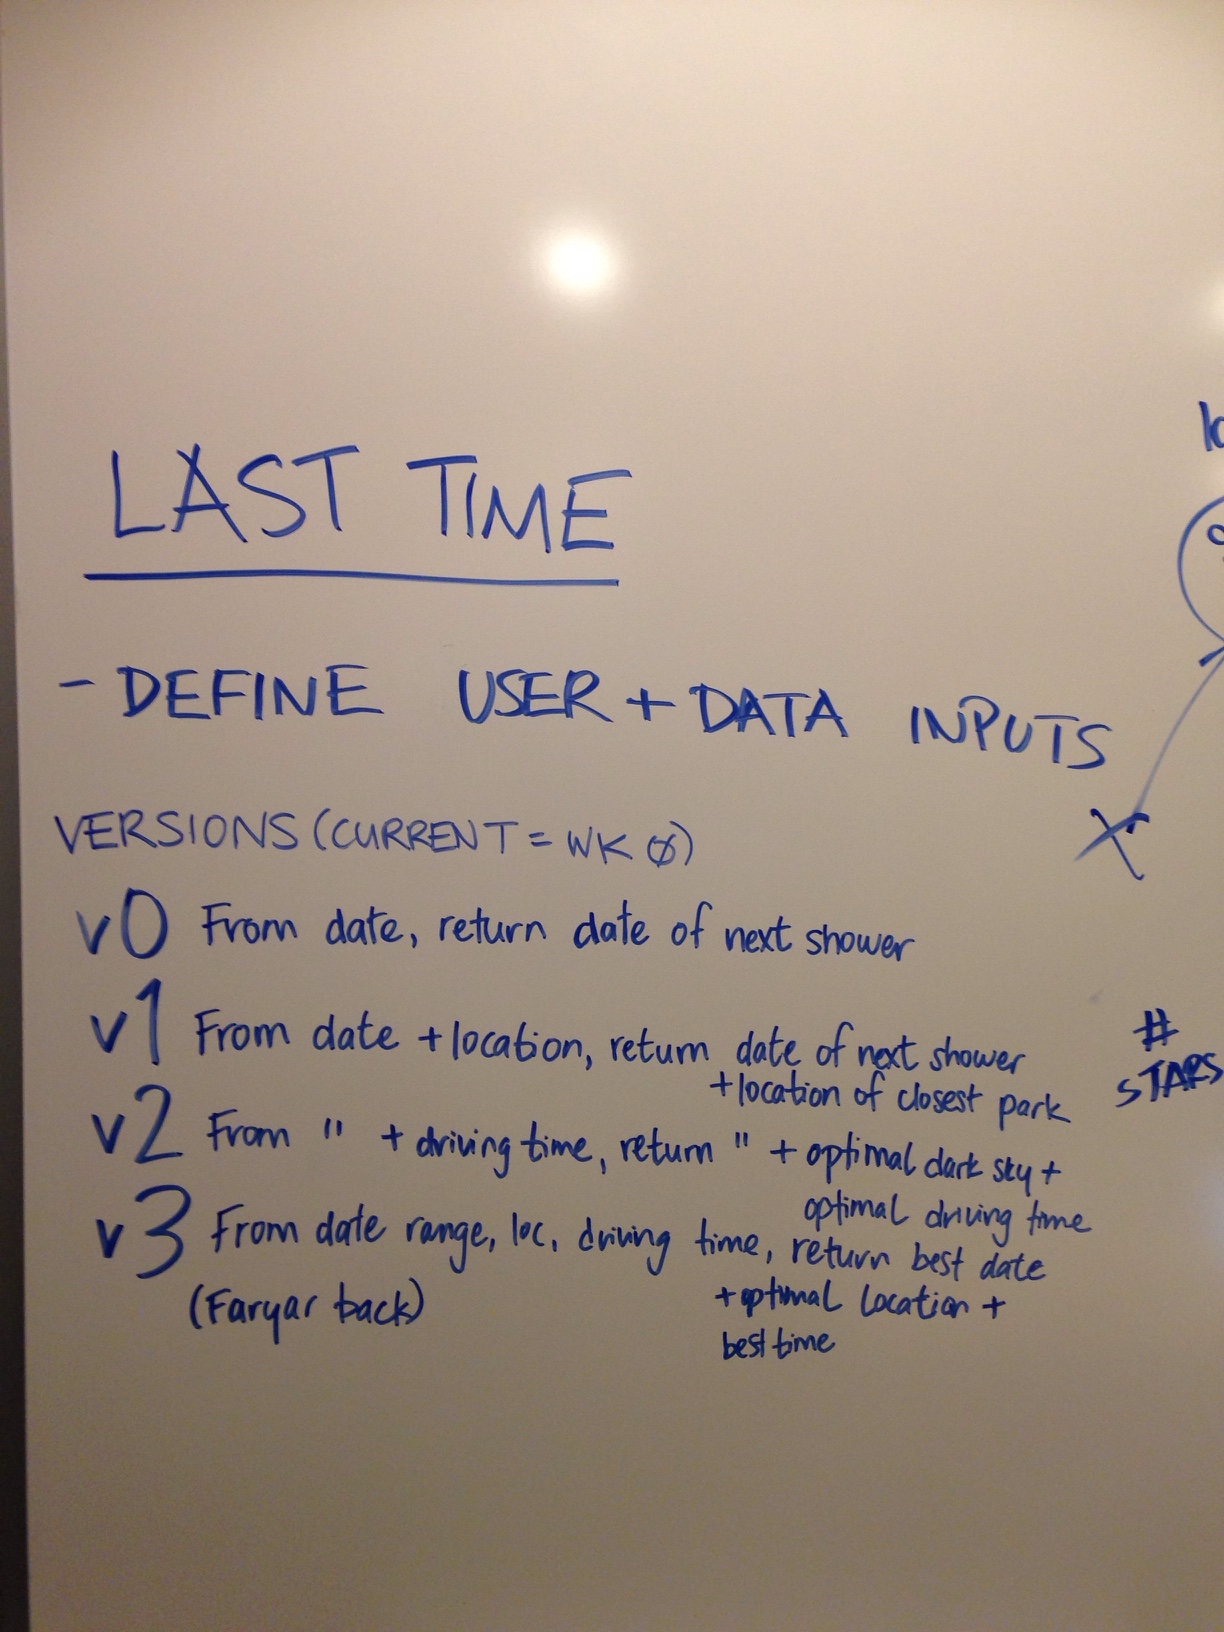 LAST TIME
- DEFINE USER + DATA INPUTS
VERSIONS (CURRENT = WK Ø)
v0 From date, return date of next shower
v1 From date + location, return date of next shower
+ location of closest park
v2 From " + driving time, return " + optimal dark sky +
optimal driving time
v3 From date range, loc, driving time, return best date
(Faryar back)
+ optimal location +
best time
#
STARS